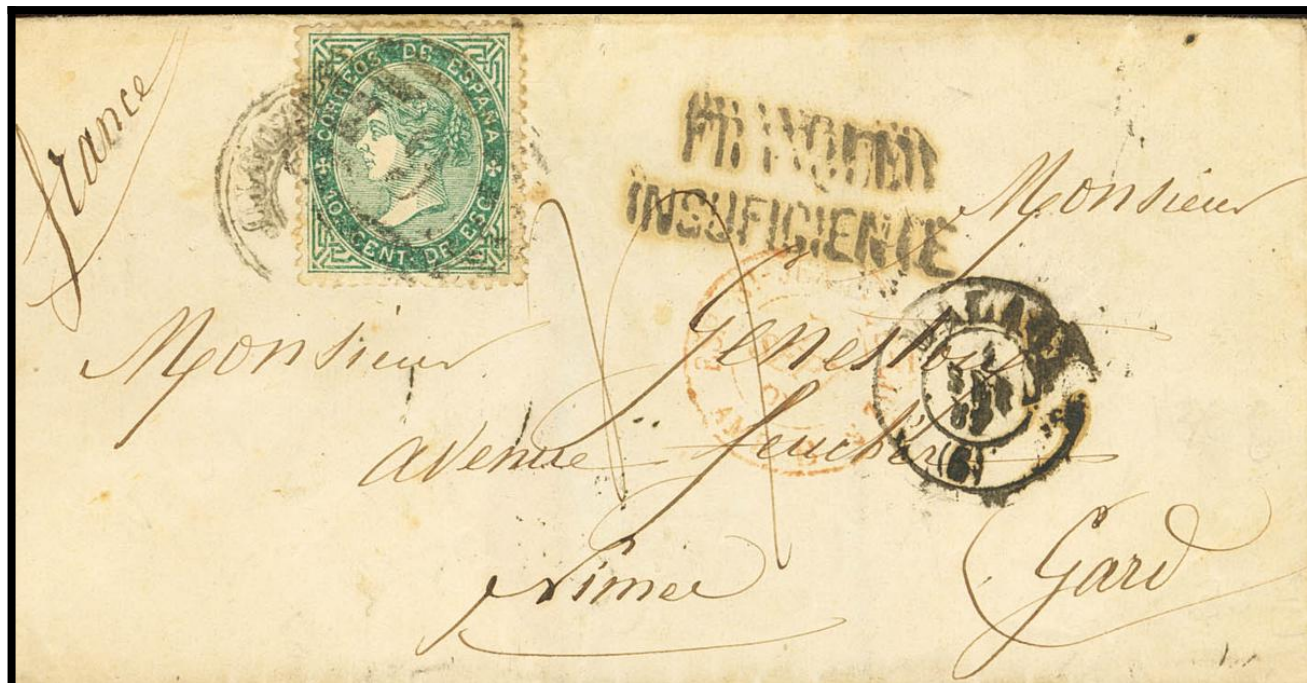 france
CORREOS DE ESPAÑA
10 CENT. DE ESCO
INSUFICIENTE
Monsieur
Monsieur Genestoux
avenue feuchères
Nimes
Gard
(6)